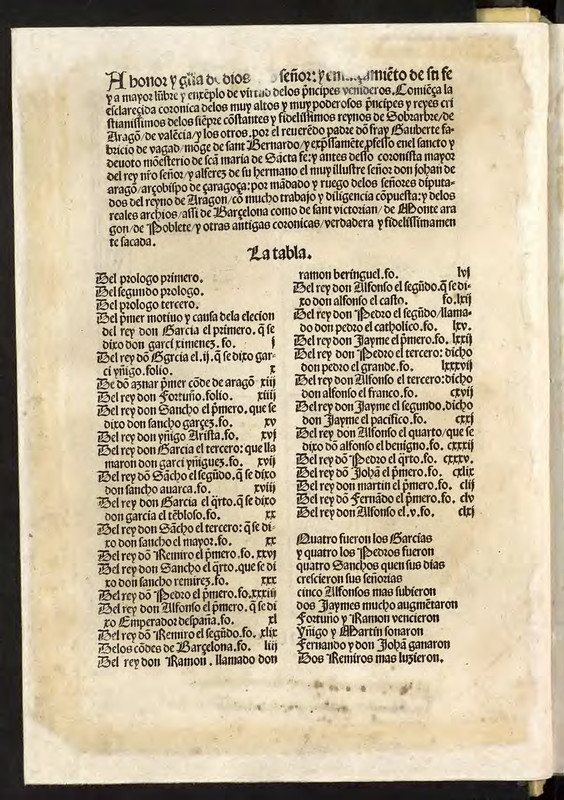 A honor y gl̃ia de dios señor: y en fe
y a mayor lũbre y enxẽplo de virtud delos p̃ncipes venideros. Comiẽça la
esclareçida coronica delos muy altos y muy poderosos p̃ncipes y reyes cri
stianissimos delos siẽpre cõstantes y fidelissimos reynos de Sobrarbe/de
Aragõ/de valẽcia/y los otros. por el reuerẽdo padre dõ fray Gauberte fa-
bricio de vagad/mõge de sant Bernardo/y exp̃ssamẽte p̱fesso enel sancto y
deuoto mõesterio de scã maria de Sãcta fe: y antes desso coronista mayor
del rey nr̃o señor/y alferez de su hermano el muy illustre señor don johan de
aragõ/arçobispo de çaragoça: por mãdado y ruego delos señores diputa-
dos del reyno de Aragon/cõ mucho trabajo y diligencia cõpuesta: y delos
reales archios/assi de Barçelona como de sant victorian/de Monte ara
gon/de Poblete/y otras antigas coronicas/verdadera y fidelissimamen
te sacada.
La tabla.
Del prologo primero.
Del segundo prologo.
Del prologo tercero.
Del p̃mer motiuo y causa dela elecion
del rey don Garcia el primero. q̃ se
dixo don garci ximenez. fo. j
Del rey dõ Garcia el.ij.q̃ se dixo gar-
ci yñigo.folio. x
De dõ aznar p̃mer cõde de aragõ xiij
Del rey don Fortuño.folio. xiiij
Del rey don Sancho el p̃mero.que se
dixo don sancho garçez.fo. xv
Del rey don yñigo Arista.fo. xvj
Del rey don Garcia el tercero: que lla
maron don garci yñiguez.fo. xvij
Del rey dõ Sãcho el segũdo.q̃ se dixo
don sancho auarca.fo. xviij
Del rey don Garcia el q̃rto.q̃ se dixo
don garcia el tẽbloso.fo. xx
Del rey don Sãcho el tercero: q̃ se di-
xo don sancho el mayor.fo. xx
Del rey dõ Remiro el p̃mero.fo.xxvj
Del rey don Sancho el q̃rto.que se di
xo don sancho remirez.fo. xxx
Del rey dõ Pedro el p̃mero.fo.xxxiij
Del rey don Alfonso el p̃mero.q̃ se di
xo Emperador despaña.fo. xl
Del rey dõ Remiro el segũdo.fo.xlix
Delos cõdes de Barçelona.fo. liij
Del rey don Ramon. llamado don
ramon beringuel.fo. lvj
Del rey don Alfonso el segũdo.q̃ se di-
xo don alfonso el casto. fo.lxij
Del rey don Pedro el segũdo/llama-
do don pedro el catholico.fo. lxv.
Del rey don Jayme el p̃mero.fo. lxxij
Del rey don Pedro el tercero: dicho
don pedro el grande.fo. lxxxvij
Del rey don Alfonso el tercero:dicho
don alfonso el franco.fo. cxvij
Del rey don Jayme el segundo.dicho
don Jayme el pacifico.fo. cxxj
Del rey don Alfonso el quarto/que se
dixo dõ alfonso el benigno.fo. cxxxij
Del rey dõ Pedro el q̃rto.fo. cxxxv.
Del rey dõ Johã el p̃mero.fo. cxlix
Del rey don martin el p̃mero.fo. clij
Del rey dõ Fernãdo el p̃mero.fo. clv
Del rey don Alfonso el.v.fo. clxj
Quatro fueron los Garcías
y quatro los Pedros fueron
quatro Sanchos quen sus dias
crescieron sus señorias
cinco Alfonsos mas subieron
dos Jaymes mucho augmẽtaron
Fortuño y Ramon vencieron
Yñigo y Martin sonaron
Fernando y don Johã ganaron
Dos Remiros mas luzieron.